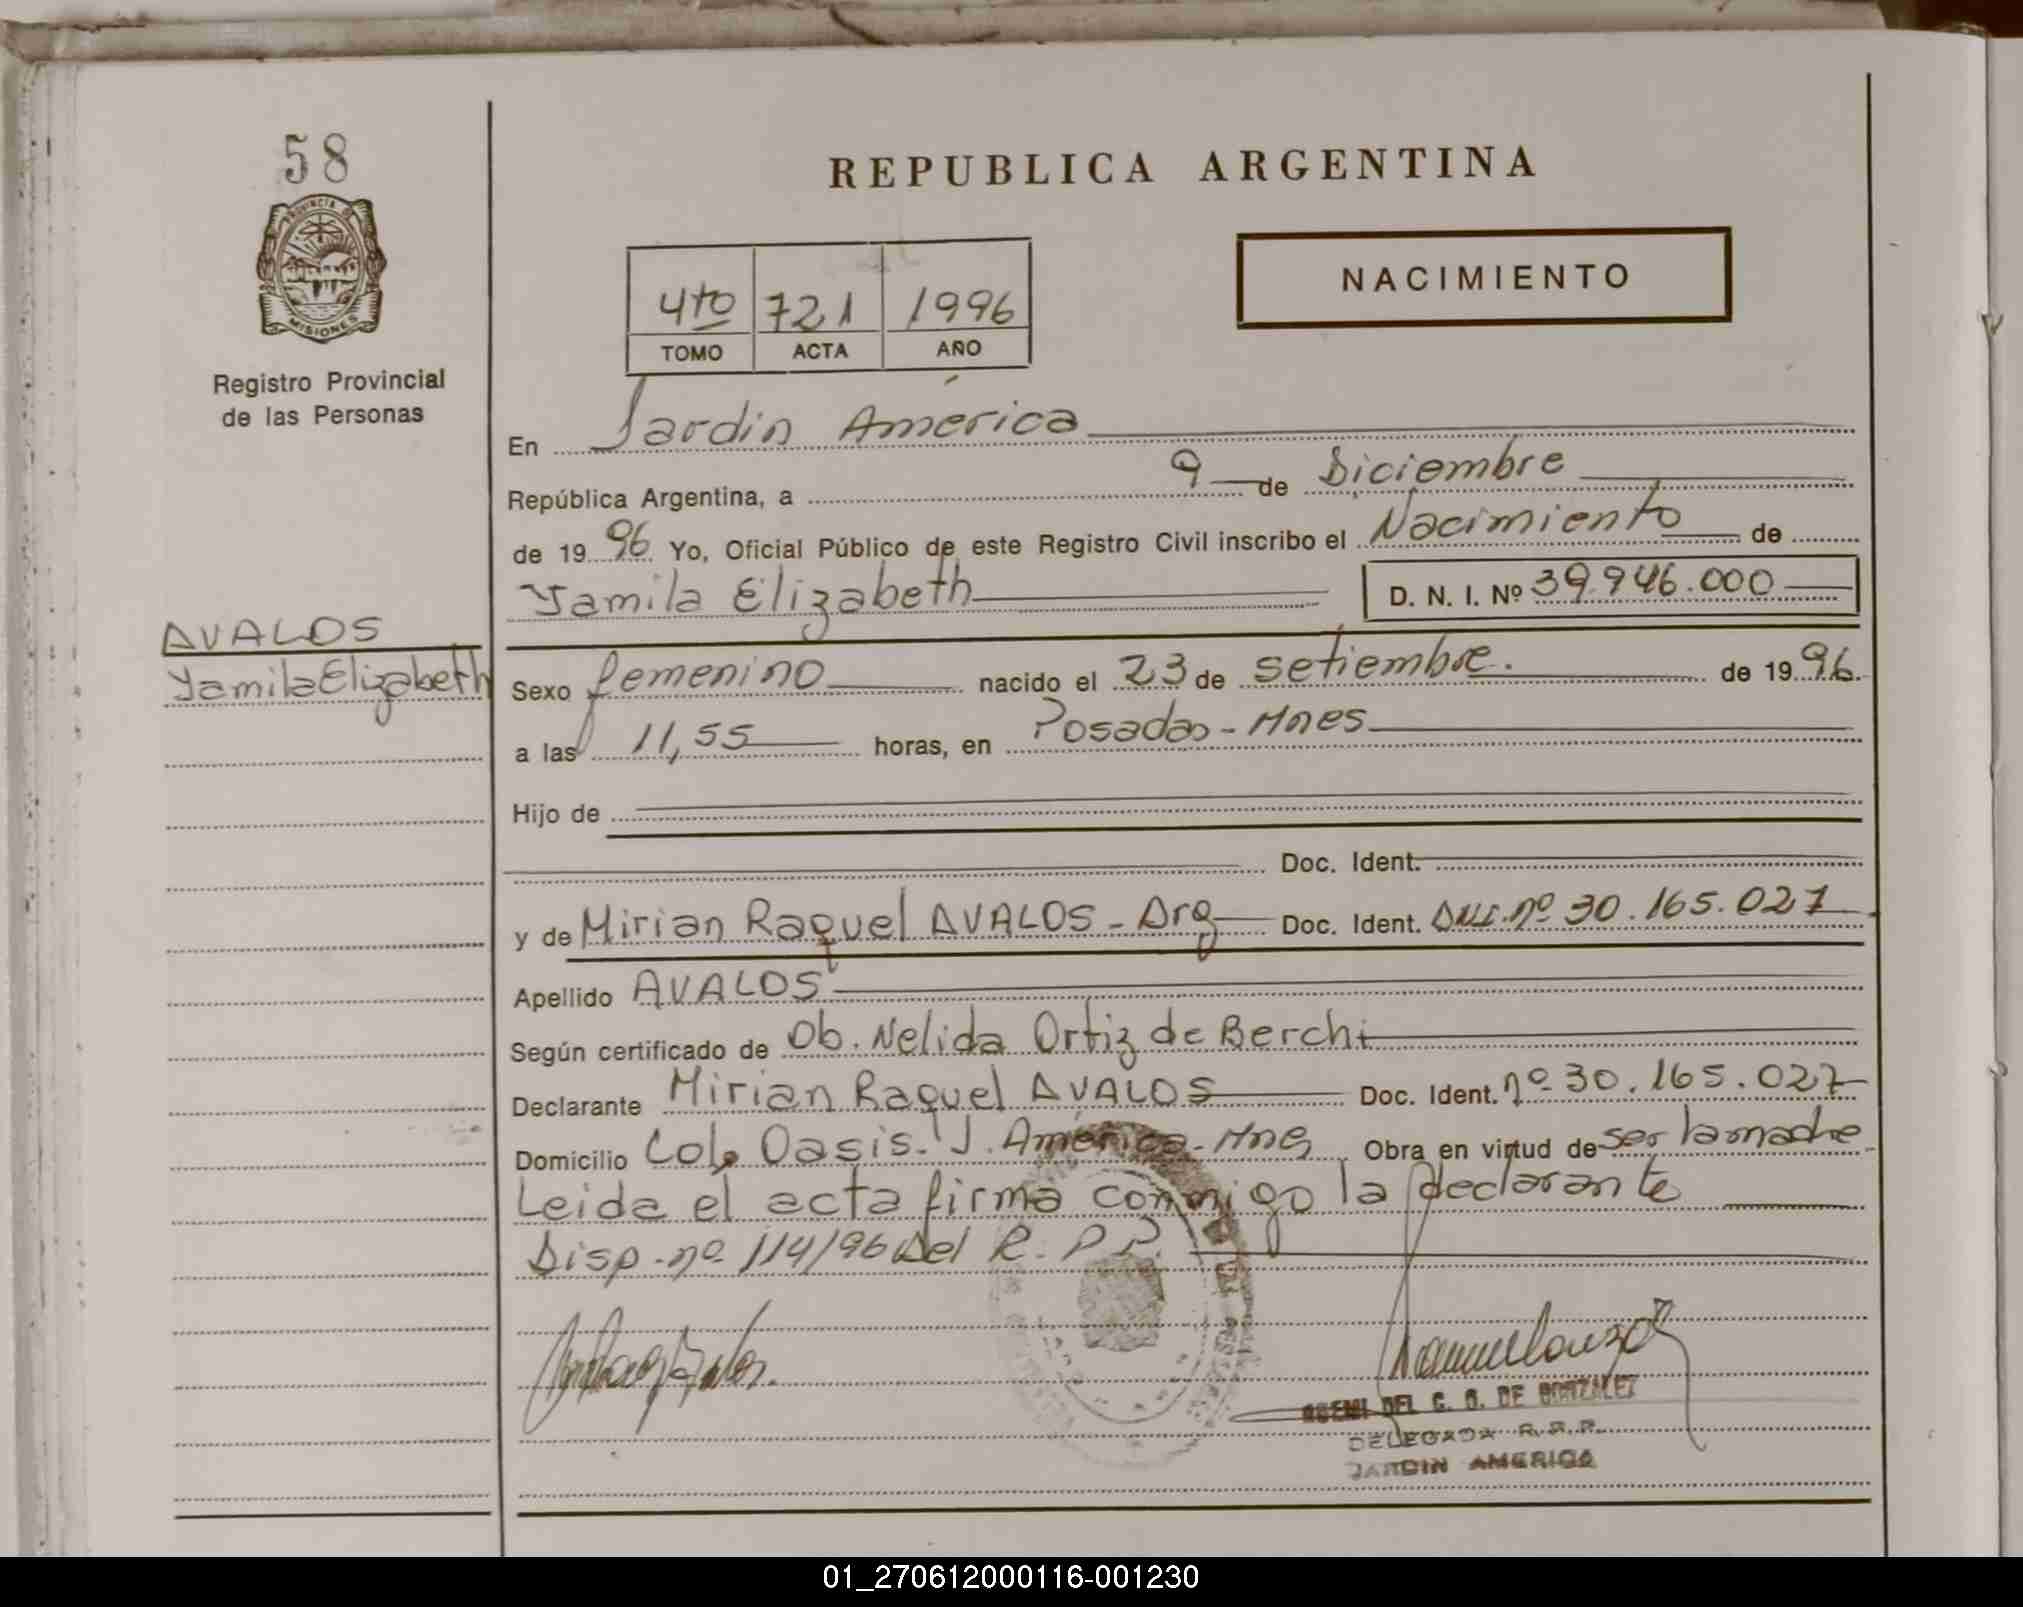 58
PROVINCIA DE
MISIONES
Registro Provincial
de las Personas
AVALOS
Yamila Elizabeth
REPUBLICA ARGENTINA
NACIMIENTO
4to 721 1996
TOMO ACTA AÑO
En Jardín América
República Argentina, a 9 de Diciembre
de 1996 Yo, Oficial Público de este Registro Civil inscribo el Nacimiento de
Yamila Elizabeth D. N. I. Nº 39.946.000
Sexo femenino nacido el 23 de setiembre. de 1996.
a las 11,55 horas, en Posadas - Mnes
Hijo de
Doc. Ident.
y de Mirian Raquel AVALOS - Arg Doc. Ident. nº 30.165.027
Apellido AVALOS
Según certificado de Ob. Nelida Ortiz de Berchi
Declarante Mirian Raquel AVALOS Doc. Ident. nº 30.165.027
Domicilio Col. Oasis - J. América - Mnes Obra en virtud de ser la madre
Leida el acta firma conmigo la declarante
Disp. nº 114/96 del R. P. P.
DEL C. B. DE GONZALEZ
DELEGADA R.P.P.
JARDIN AMERICA
01_270612000116-001230